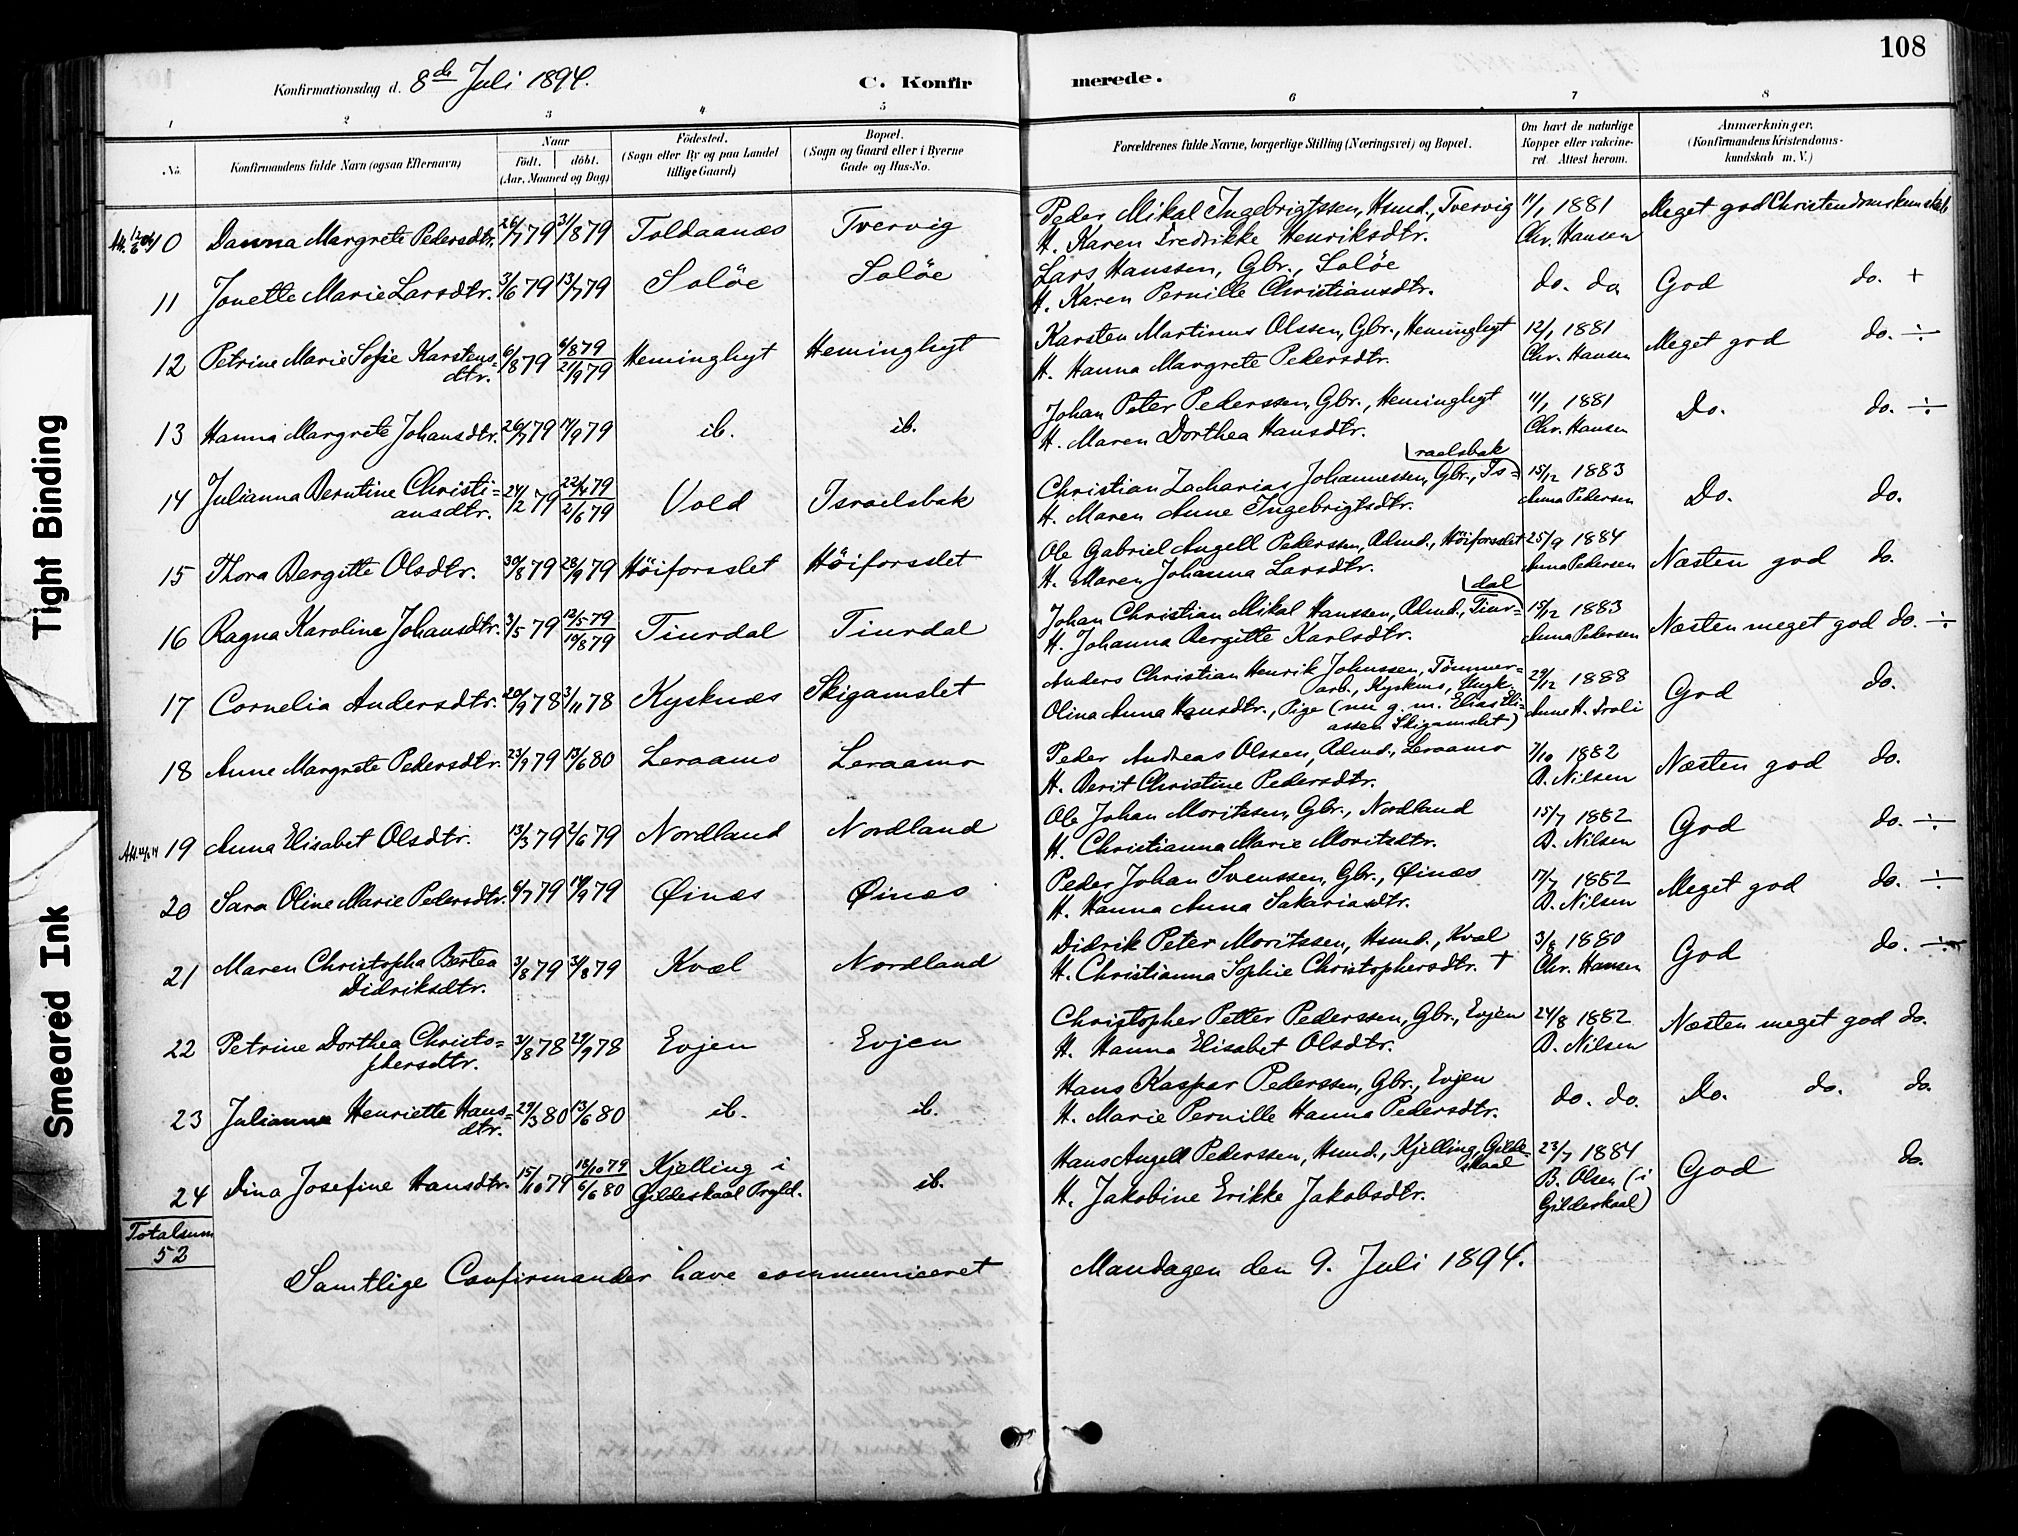 108
Konfirmationsdag d. 8de Juli 1894.
C. Konfirmerede.
1 2 3 4 5 6 7 8
No.
Konfirmandens fulde Navn (ogsaa Efternavn)
Naar
födt. döbt.
(Aar, Maaned og Dag)
Födested.
(Sogn eller By og paa Landet
tillige Gaard)
Bopæl.
(Sogn og Gaard eller i Byerne
Gade og Hus-No.
Forældrenes fulde Navne, borgerlige Stilling (Næringsvei) og Bopæl.
Om havt de naturlige
Kopper eller vakcine-
ret. Attest herom.
Anmærkninger.
(Konfirmandens Kristendoms-
kundskab m. V.)
10 Danna Margrete Pedersdtr. 26/7 79 31/8 79 Toldaanæs Tvervig Peder Mikal Ingebrigtssen, Hsmd., Tvervig 11/1 1881 Meget god Christendomskundskab
H. Karen Fredrikke Henriksdtr. Chr. Hansen
11 Jonette Marie Larsdtr. 3/6 79 13/7 79 Soløe Soløe Lars Hanssen, Gbr., Soløe do. do. God do. +
H. Karen Pernille Christiansdtr.
12 Petrine Marie Sofie Karstens= 6/8 79 6/8 79 Heminghyt Heminghyt Karsten Martinus Olssen, Gbr., Heminghyt 12/1 1881 Meget god do. ÷
dtr. 21/9 79 H. Hanna Margrete Pedersdtr. Chr. Hansen
13 Hanna Margrete Johansdtr. 26/7 79 14/9 79 ib. ib. Johan Peter Pederssen, Gbr., Heminghyt 11/1 1881 Do. do. ÷
H. Maren Dorthea Hansdtr. Chr. Hansen
raelsbak
14 Julianna Berntine Christi= 24/2 79 22/4 79 Vold Israelsbak Christian Zacharias Johannessen, Gbr., Is= 15/12 1883 Do. do.
ansdtr. 2/6 79 H. Maren Anne Ingebrigtsdtr. Anna Pedersen
15 Thora Bergitte Olsdtr. 30/8 79 28/9 79 Høiforsslet Høiforsslet Ole Gabriel Angell Pederssen, Rdmd., Høiforsslet 25/9 1884 Næsten god do.
H. Maren Johanna Larsdtr. Anna Pedersen
dal
16 Ragna Karoline Johansdtr. 3/5 79 12/5 79 Tiurdal Tiurdal Johan Christian Mikal Hanssen, Rdmd., Tiur= 15/12 1883 Næsten meget god do. ÷
10/8 79 H. Johanna Bergitte Karlsdtr. Anna Pedersen
17 Cornelia Andersdtr. 20/9 78 3/11 78 Kysknæs Skigamslet Anders Christian Henrik Johnssen, Tømmer= 29/12 1888 God do.
arb., Kysknæs, Ungk.
Olina Anna Hansdtr., Pige (nu g. m. Elias Eli= Anne H. Troli
assen Skigamslet)
18 Anne Margrete Pedersdtr. 23/9 79 13/6 80 Leraamo Leraamo Peder Andreas Olssen, Rdmd., Leraamo 7/10 1882 Næsten god do.
H. Berit Christine Pedersdtr. D. Nilsen
19 Anna Elisabet Olsdtr. 13/3 79 2/6 79 Nordland Nordland Ole Johan Moritssen, Gbr., Nordland 15/7 1882 God do. ÷
H. Christianna Marie Moritsdtr. D. Nilsen
20 Sara Oline Marie Pedersdtr. 6/7 79 14/9 79 Øinæs Øinæs Peder Johan Svenssen, Gbr., Øinæs 17/7 1882 Meget god do. ÷
H. Hanna Anna Sakariasdtr. D. Nilsen
21 Maren Christopha Bertea 3/8 79 31/8 79 Kvæl Nordland Didrik Peter Moritssen, Hsmd., Kvæl 3/8 1880 God do. ÷
Didriksdtr. H. Christianna Sophie Christophersdtr. + Chr. Hansen
22 Petrine Dorthea Christo= 31/8 78 29/9 78 Evjen Evjen Christopher Petter Pederssen, Gbr., Evjen 24/8 1882 Næsten meget god do.
phersdtr. H. Hanna Elisabet Olsdtr. D. Nilsen
23 Julianna Henriette Hans= 29/3 80 13/6 80 ib. ib. Hans Kaspar Pederssen, Gbr., Evjen do. do. Do. do. do.
dtr. H. Marie Pernille Hanna Pedersdtr.
24 Dina Josefine Hansdtr. 15/10 79 18/10 79 Kjelling i ib. Hans Angell Pederssen, Hsmd., Kjelling, Gilde= 23/7 1884 God do.
6/6 80 Gildeskaal Prgld. skaal
H. Jakobine Erikke Jakobsdtr. B. Olsen (i
Gildeskaal)
Totalsum
52
Samtlige Confirmander have communiceret Mandagen den 9. Juli 1894.
Tight Binding
Smeared Ink